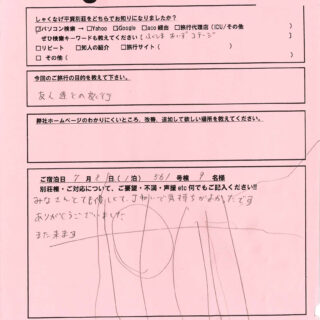 しゃくなげ平貸別荘をどちらでお知りになりましたか?
☑パソコン検索 → □Yahoo □Google □aco 経由 □旅行代理店 (ICU/その他 )
ぜひ検索キーワードも教えてください (ふくしま コテージ )
□リピート □知人の紹介 □旅行サイト ( )
□その他 ( )
今回のご旅行の目的を教えて下さい。
友人達との旅行
弊社ホームページのわかりにくいところ、改善、追加して欲しい場所を教えてください。
ご宿泊日 7月 日( 1泊) 561号棟 9名様
別荘棟・ご対応について、ご要望・不満・声援etc何でもご記入ください!!
みなさんとても優しくて、 気持ちがよかったです
ありがとうございました
また来ます